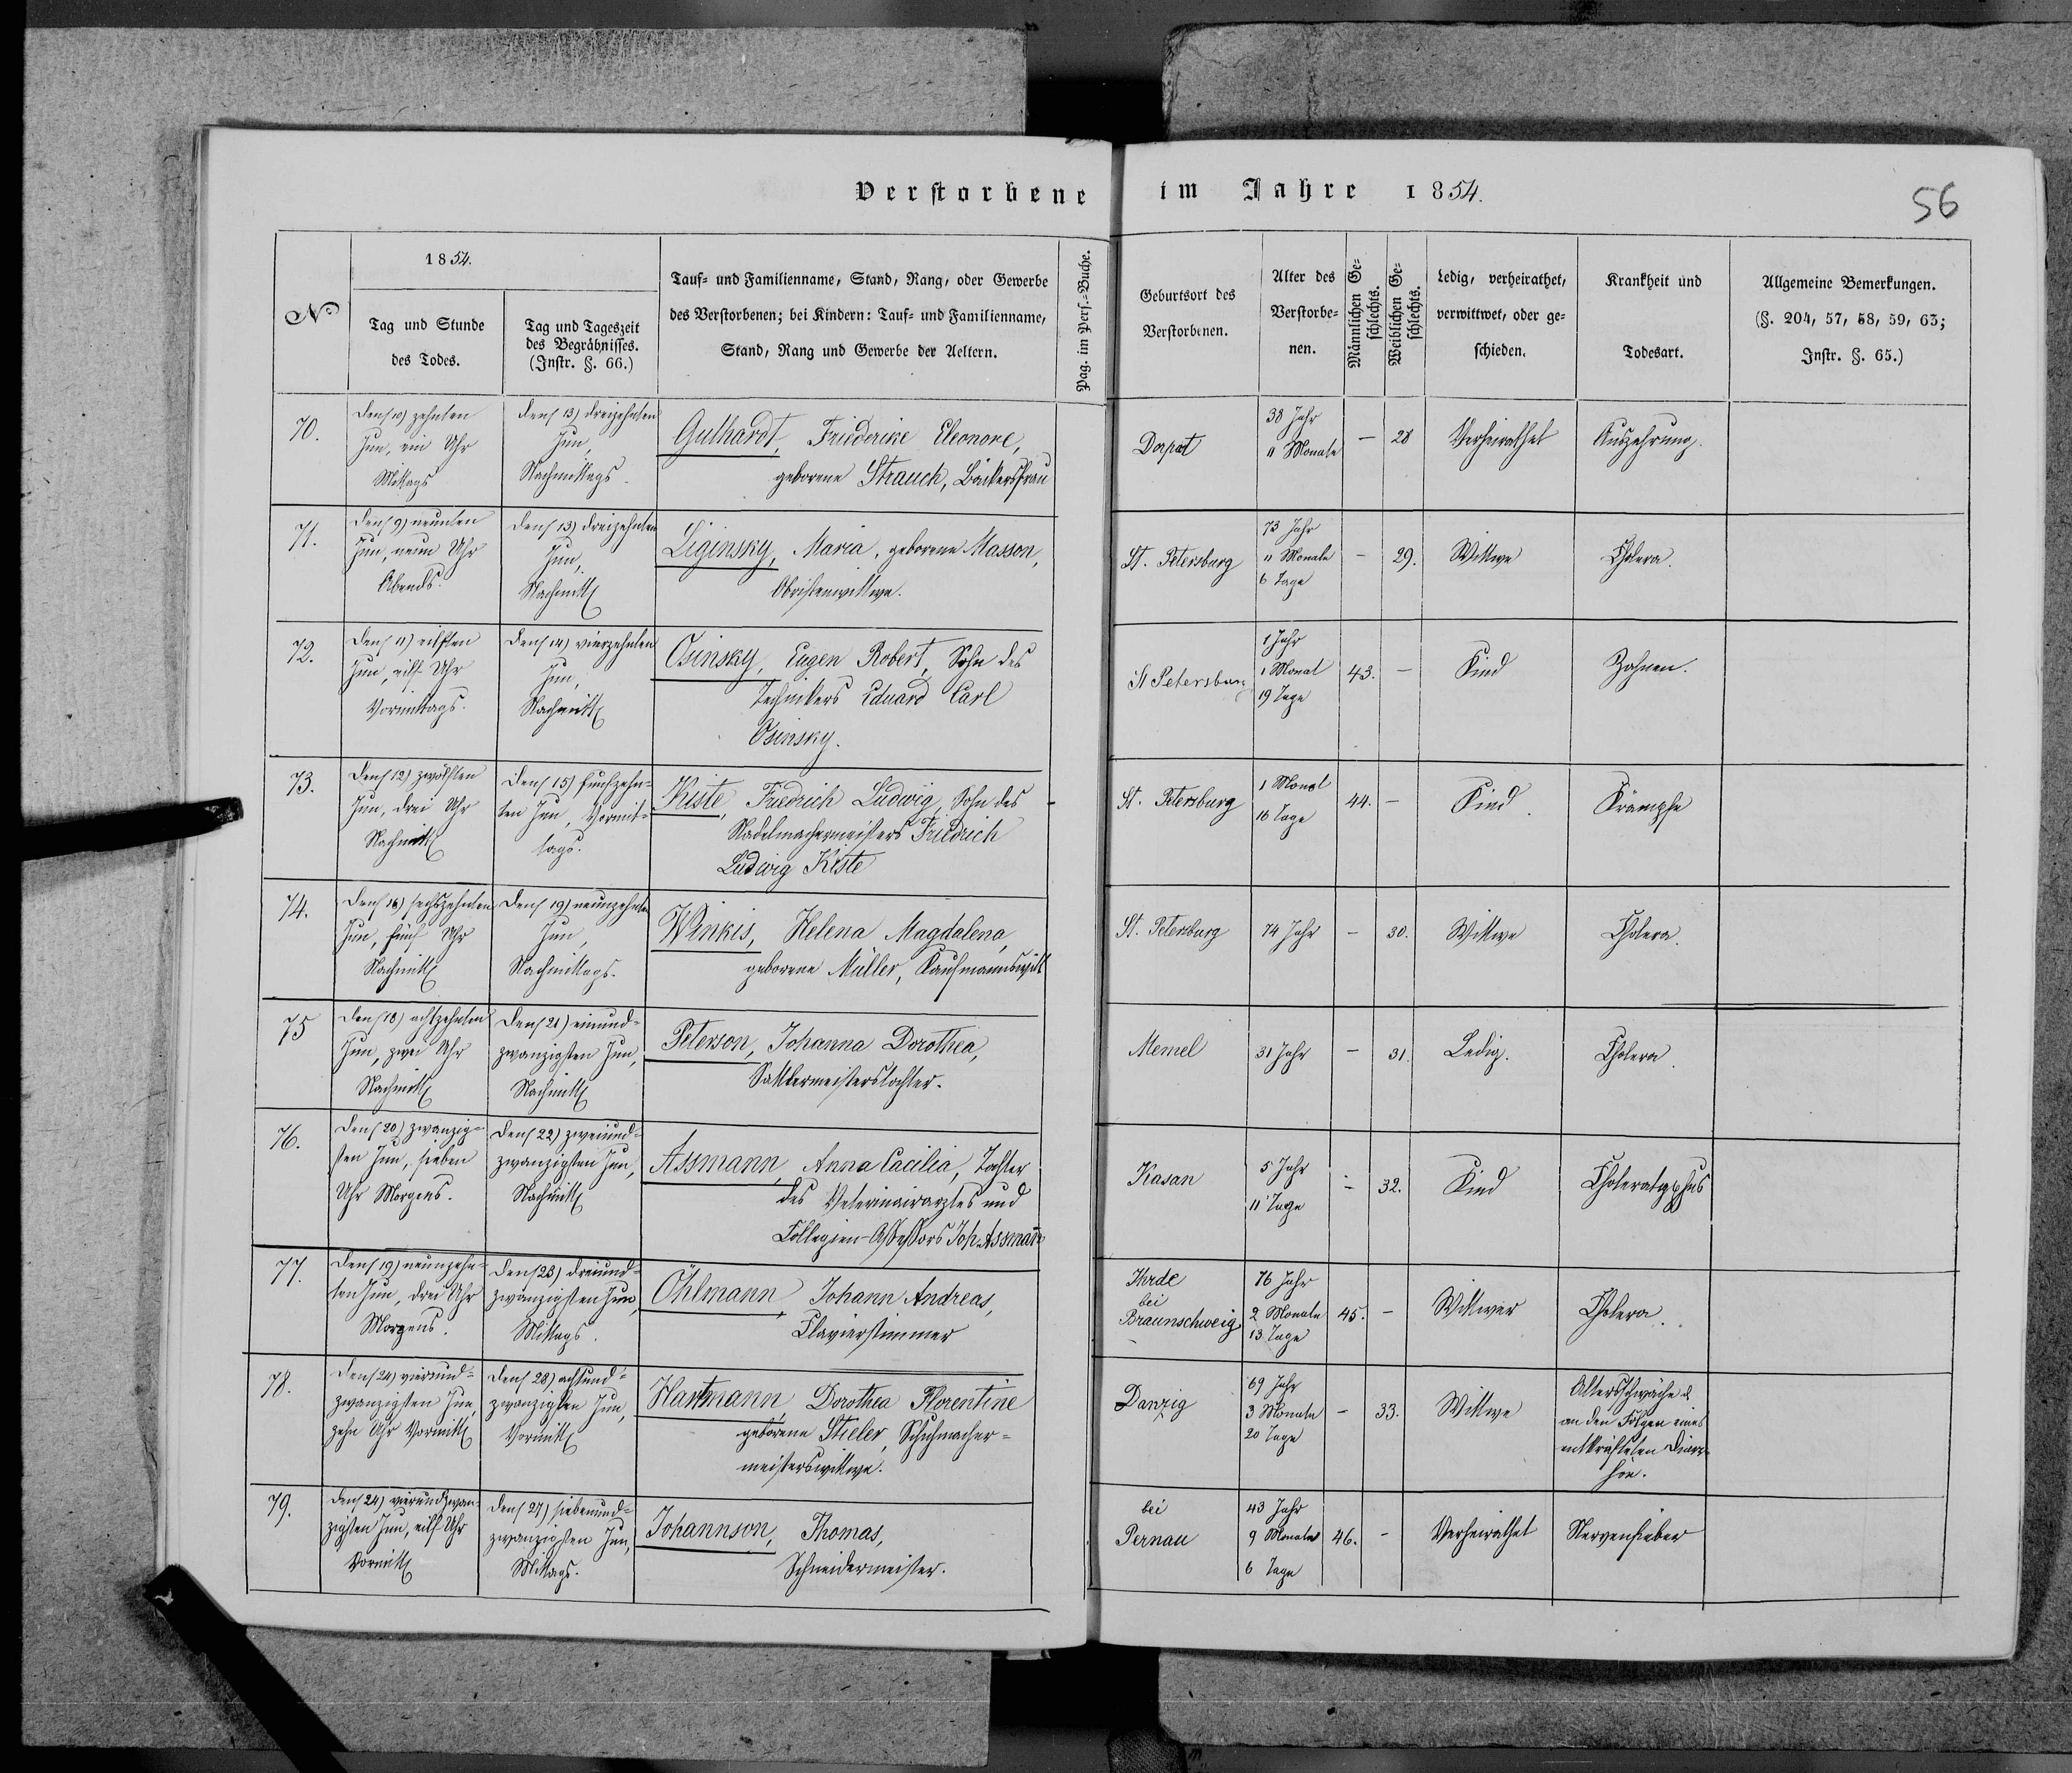 Verstorbene im Jahre 1854.
56
No
1854.
Tag und Stunde
des Todes.
Tag und Tageszeit
des Begräbnisses.
(Instr. §. 66.)
Tauf- und Familienname, Stand, Rang, oder Gewerbe
des Verstorbenen; bei Kindern: Tauf- und Familienname,
Stand, Rang und Gewerbe der Aeltern.
Pag. im Pers.-Buche.
Geburtsort des
Verstorbenen.
Alter des
Verstorbe-
nen.
Männlichen Ge-
schlechts.
Weiblichen Ge-
schlechts.
Ledig, verheirathet,
verwittwet, oder ge-
schieden.
Krankheit und
Todesart.
Allgemeine Bemerkungen.
(§. 204, 57, 58, 59, 63;
Instr. §. 65.)
70.
Den (10) zehnten
Jun, ein Uhr
Mittags
Den (13) dreizehnten
Jun,
Nachmittags.
Guthardt, Friederike Eleonore,
geborene Strauch, Bäckersfrau
Dorpat
38 Jahr
11 Monate
— 28
Verheirathet
Auszehrung.
71.
Den (9) neunten
Jun, neun Uhr
Abends.
Den (13) dreizehnten
Jun,
Nachmitt
Liginsky, Maria, geborene Masson,
Obristenwittwe.
St. Petersburg
73 Jahr
11 Monate
6 Tage
— 29.
Wittwe
Cholera.
72.
Den (11) eilften
Jun, eilf Uhr
Vormittags.
Den (14) vierzehnten
Jun,
Nachmitt
Osinsky, Eugen Robert, Sohn des
Technikers Eduard Carl
Osinsky.
St Petersburg
1 Jahr
1 Monat
19 Tage
43. —
Kind
Zahnen.
73.
Den (12) zwölften
Jun, drei Uhr
Nachmitt
Den (15) funfzehn-
ten Jun, Vormit-
tags.
Kiste, Friedrich Ludwig, Sohn des
Nadelmachermeisters Friedrich
Ludwig Kiste
St. Petersburg
1 Monat
16 Tage
44. —
Kind.
Krämpfe
74.
Den (16) sechszehnten
Jun, fünf Uhr
Nachmitt
Den (19) neunzehnten
Jun,
Nachmittags.
Winkis, Helena Magdalena,
geborene Müller, Kaufmannswitt
St. Petersburg
74 Jahr
— 30.
Wittwe
Cholera.
75
Den (18) achtzehnten
Jun, zwei Uhr
Nachmitt
Den (21) einund-
zwanzigsten Jun,
Nachmitt
Peterson, Johanna Dorothea,
Sattlermeisterstochter.
Memel
31 Jahr
— 31.
Ledig.
Cholera.
76.
Den (20) zwanzig-
sten Jun, sieben
Uhr Morgens.
Den (22) zweiund-
zwanzigsten Jun,
Nachmitt
Assmann, Anna Cäcilia, Tochter
des Veterinairarztes und
Collegien-Assessors Joh. Assmann
Kasan
5 Jahr
11 Tage
— 32.
Kind
Choleratyphus
77.
Den (19) neunzehn-
ten Jun, drei Uhr
Morgens.
Den (23) dreiund-
zwanzigsten Jun,
Mittags.
Öhlmann, Johann Andreas,
Clavierstimmer
Ihrde
bei
Braunschweig
76 Jahr
2 Monate
13 Tage
45. —
Wittwer
Cholera.
78.
Den (24) vierund-
zwanzigsten Jun,
zehn Uhr Vormitt
Den (28) achtund-
zwanzigsten Jun,
Vormitt
Hartmann Dorothea Florentine
geborene Stieler, Schuhmacher-
meisterswittwe.
Danzig
69 Jahr
3 Monate
20 Tage
— 33.
Wittwe
Altersschwäche &
an den Folgen eines
entkräfteten Diarr-
höe.
79.
Den (24) vierundzwan-
zigsten Jun, eilf Uhr
Vormitt
Den (27) siebenund-
zwanzigsten Jun,
Mittags.
Johannson, Thomas,
Schneidermeister.
bei
Pernau
43 Jahr
9 Monate
6 Tage
46. —
Verheirathet
Nervenfieber